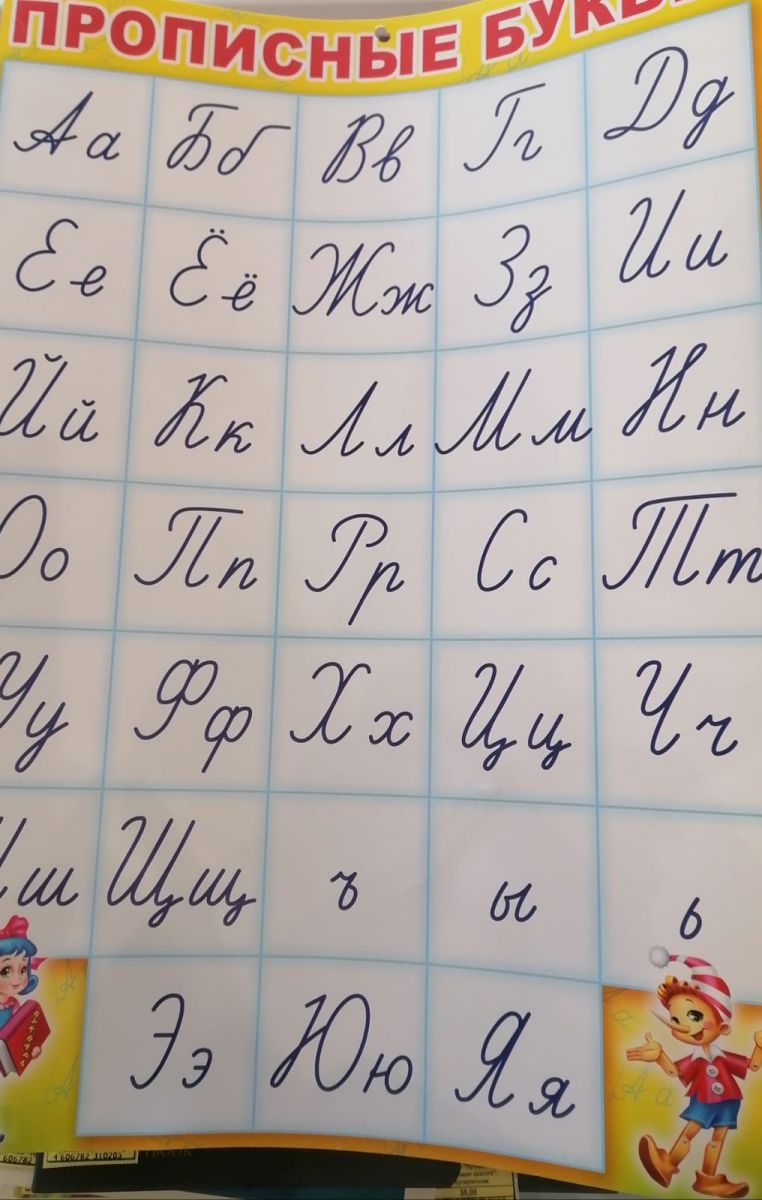 ПРОПИСНЫЕ БУКВЫ
Аа Бб Вв Гг Дд
Ее Ёё Жж Зз Ии
Йй Кк Лл Мм Нн
Оо Пп Рр Сс Тт
Уу Фф Хх Цц Чч
Шш Щщ ъ ы ь
Ээ Юю Яя
БУКВАРЬ
606782
4 606782 310205
BOOK